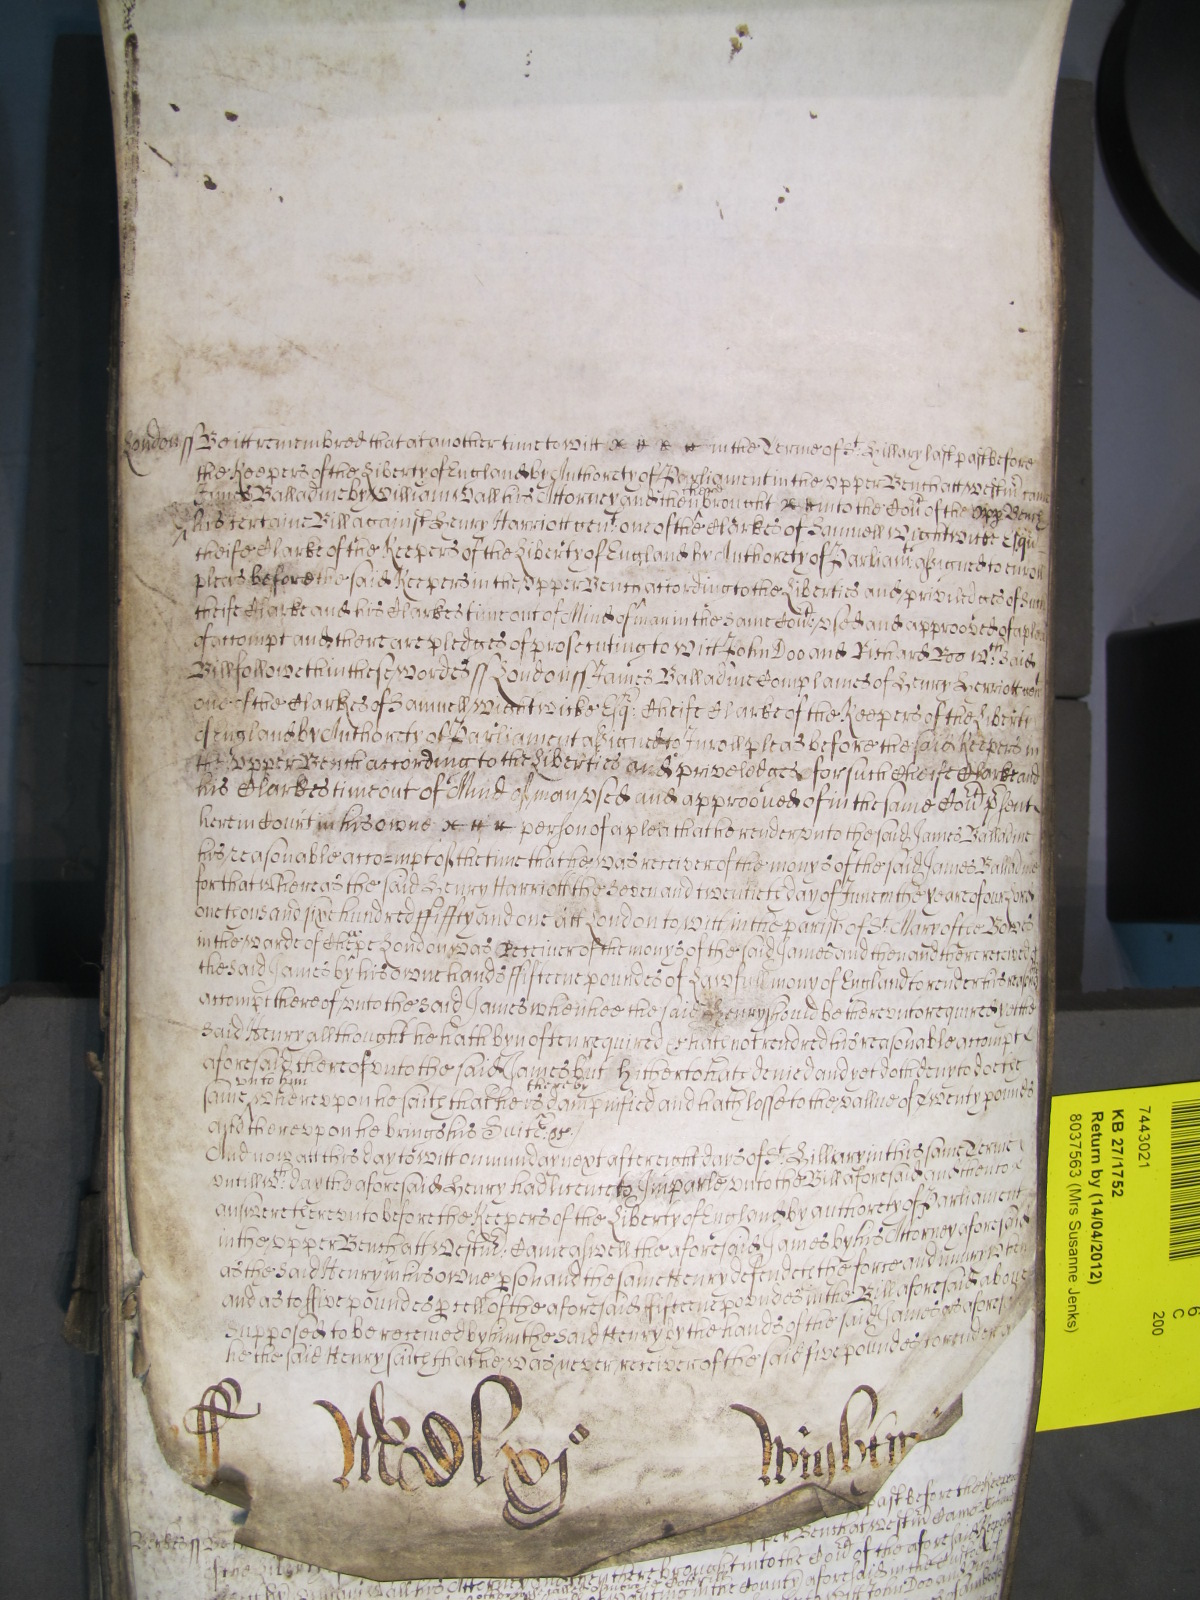 London ss Be itt remembred that at another time to witt in the Terme of St Hillary last past before
the Keepers of the Liberty of England by Authorety of Parliament in the upper Bench att Westmr came
James Balladine by William Wall his Attorney and then brought into the Court of the Upp Bench
his certaine Bill against Henry Harriott gent one of the Clarkes of Samuell Wightwicke Esqr
cheife Clarke of the Keepers of the Liberty of England by Authorety of Parliamt assigned to enroll
pleas before the said Keepers in the Upper Bench according to the Liberties and priviledges of such
cheife Clarke and his Clarkes time out of Mind of man in the same Court used and approoved of a plea
of accompt and there are pledges of prosecuting to witt John Doo and Richard Roo wch said
Bill followeth in these wordes ss London ss James Balladine Complaines of Henry Herriott gent
one of the Clarkes of Samuell Wightwicke Esqr Cheife Clarke of the Keepers of the Liberti
of England by Authorety of Parliament assigned to Inroll pleas before the said Keepers in
the Upper Bench according to the Liberties and priveledges for such Cheife Clarke and
his Clarkes time out of Mind of man used and approoved of in the same Court psent
here in Court in his owne person of a plea that he render unto the said James Balladine
his reasonable accompt of the time that he was receiver of the monys of the said James Balladine
for that Whereas the said Henry Harriott the Seven and twentieth day of June in the yeare of our Lord
one tousand sixe hundred fiffty and one att London to witt in the parish of St Mary of the Bowe
in the warde of Cheape London was Receiver of the monys of the said James and then and there received of
the said James by his owne hands fifteene poundes of Lawfull mony of England to render his reasonable
accompt thereof unto the said James when hee the said Henry should be thereunto required yet the
said Henry allthought he hath byn often required hath not rendred his reasonable accompt
aforesaid thereof unto the said James but hitherto hath denied and yet doth deny to doe the
unto him thereby
same Whereupon he saith that he is dampnified and hath losse to the vallue of Twenty pounds
And thereupon he brings his Suite &c
And now att this day to witt on munday next after eight dayes of St Hillary in this same Terme
untill wch day the aforesaid Henry had licence to Imparle unto the Bill aforesaid and then to
answere thereunto before the Keepers of the Liberty of England by authorety of Parliament
in the upper Bench att Westmr Came aswell the aforesaid James by his Attorney aforesaid
as the said Henry in his owne pson and the same Henry defendeth the force and iniury When
and as to ffive poundes pcell of the aforesaid fifteene poundes in the Bill aforesaid above
supposed to be received by him the said Henry by the hands of the said James as aforesaid
he the said Henry saith that he was never receiver of the said five poundes to render
Wightw
past before the Keepers
Berks ss Be itt
upper Bench at Westmr Came
of the Liberty
brought into the Court of the aforesaid Keepers
in the County aforesaid in the Custody of
John Doo and
7443021
KB 27/1752
Return by (14/04/2012)
8037563 (Mrs Susanne Jenks)
C
200